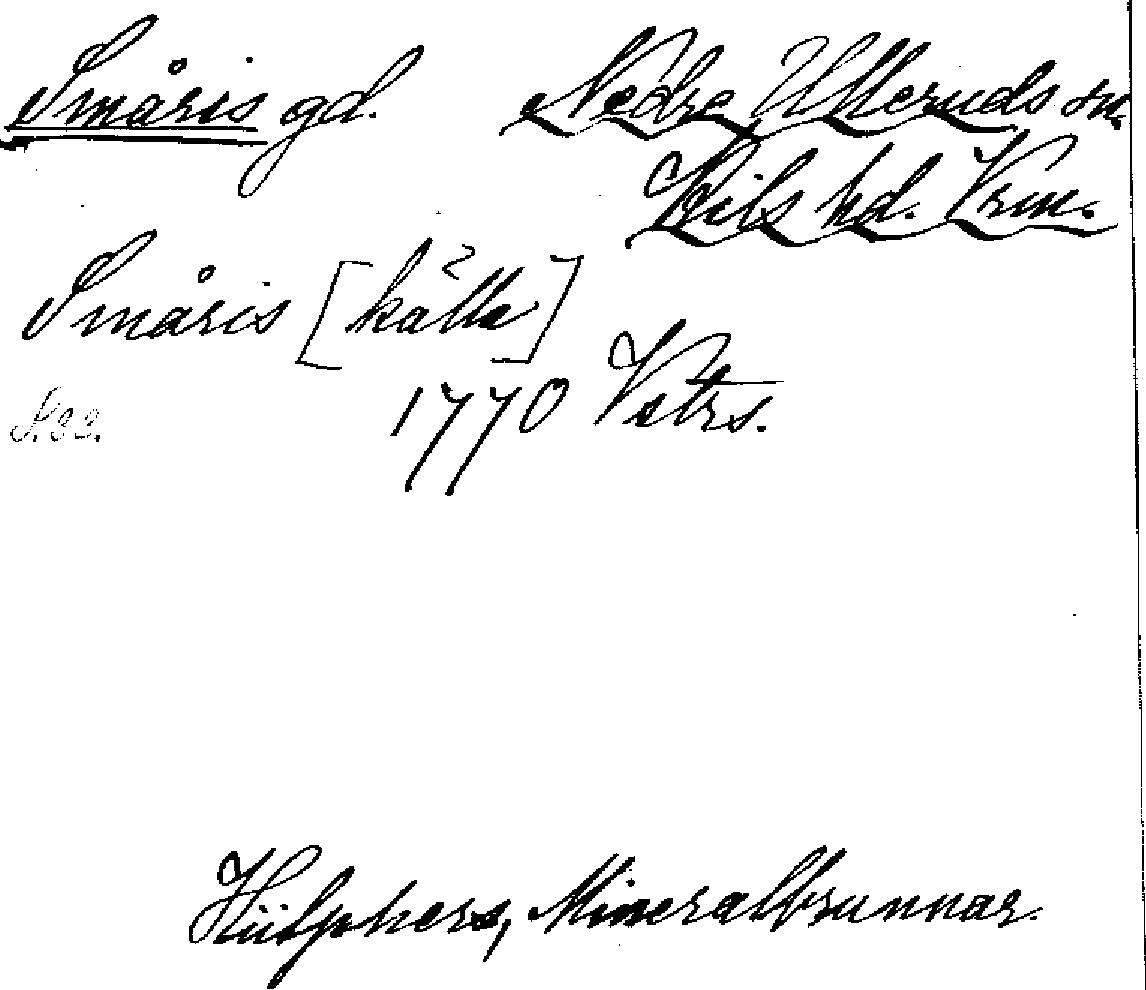 Småris gd. Nedre Ulleruds sn.
Kils hd. Vrm.
Småris [källa]
1770 Vetrs.
Hülphers, Mineralbrunnar.